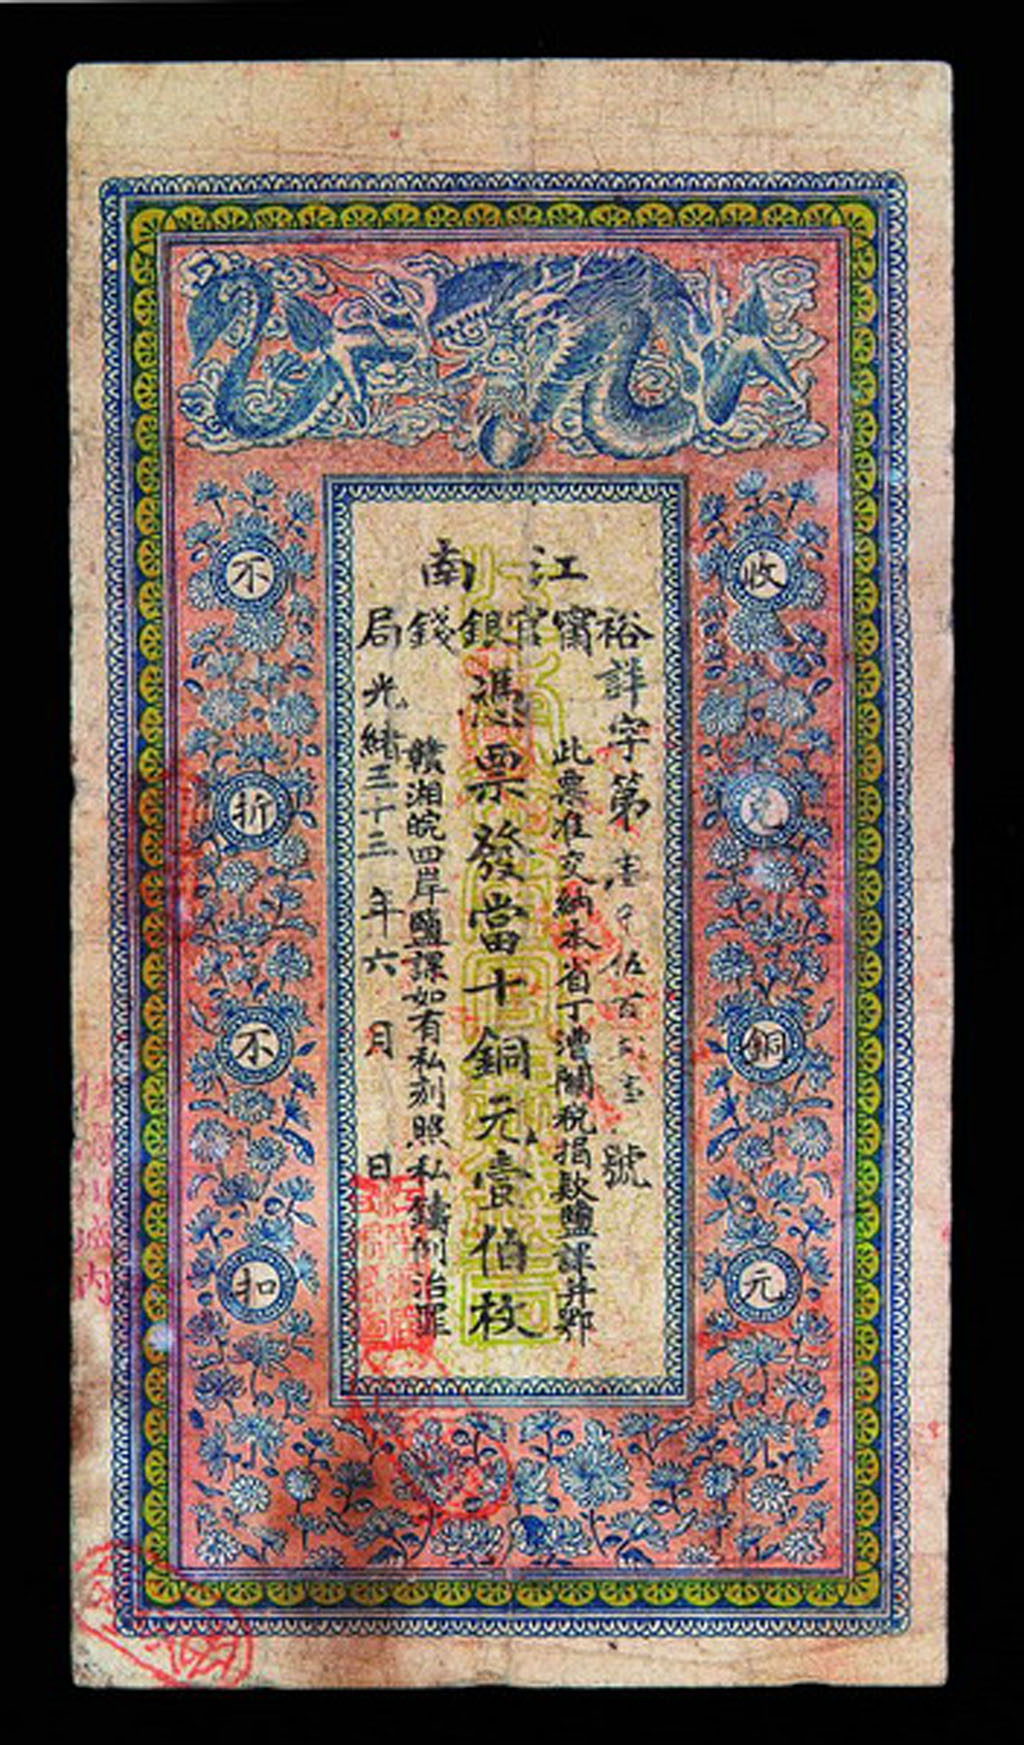 江南
裕甯官銀錢局
裕詳字第壹千伍百 壹號
此票准交納本省丁漕關稅捐款鹽課并鄂
憑票發當十銅元壹伯枚
贛湘皖四岸鹽課如有私刻照私鑄例治罪
光緒三十三年六月 日
收兌銅元
不折不扣